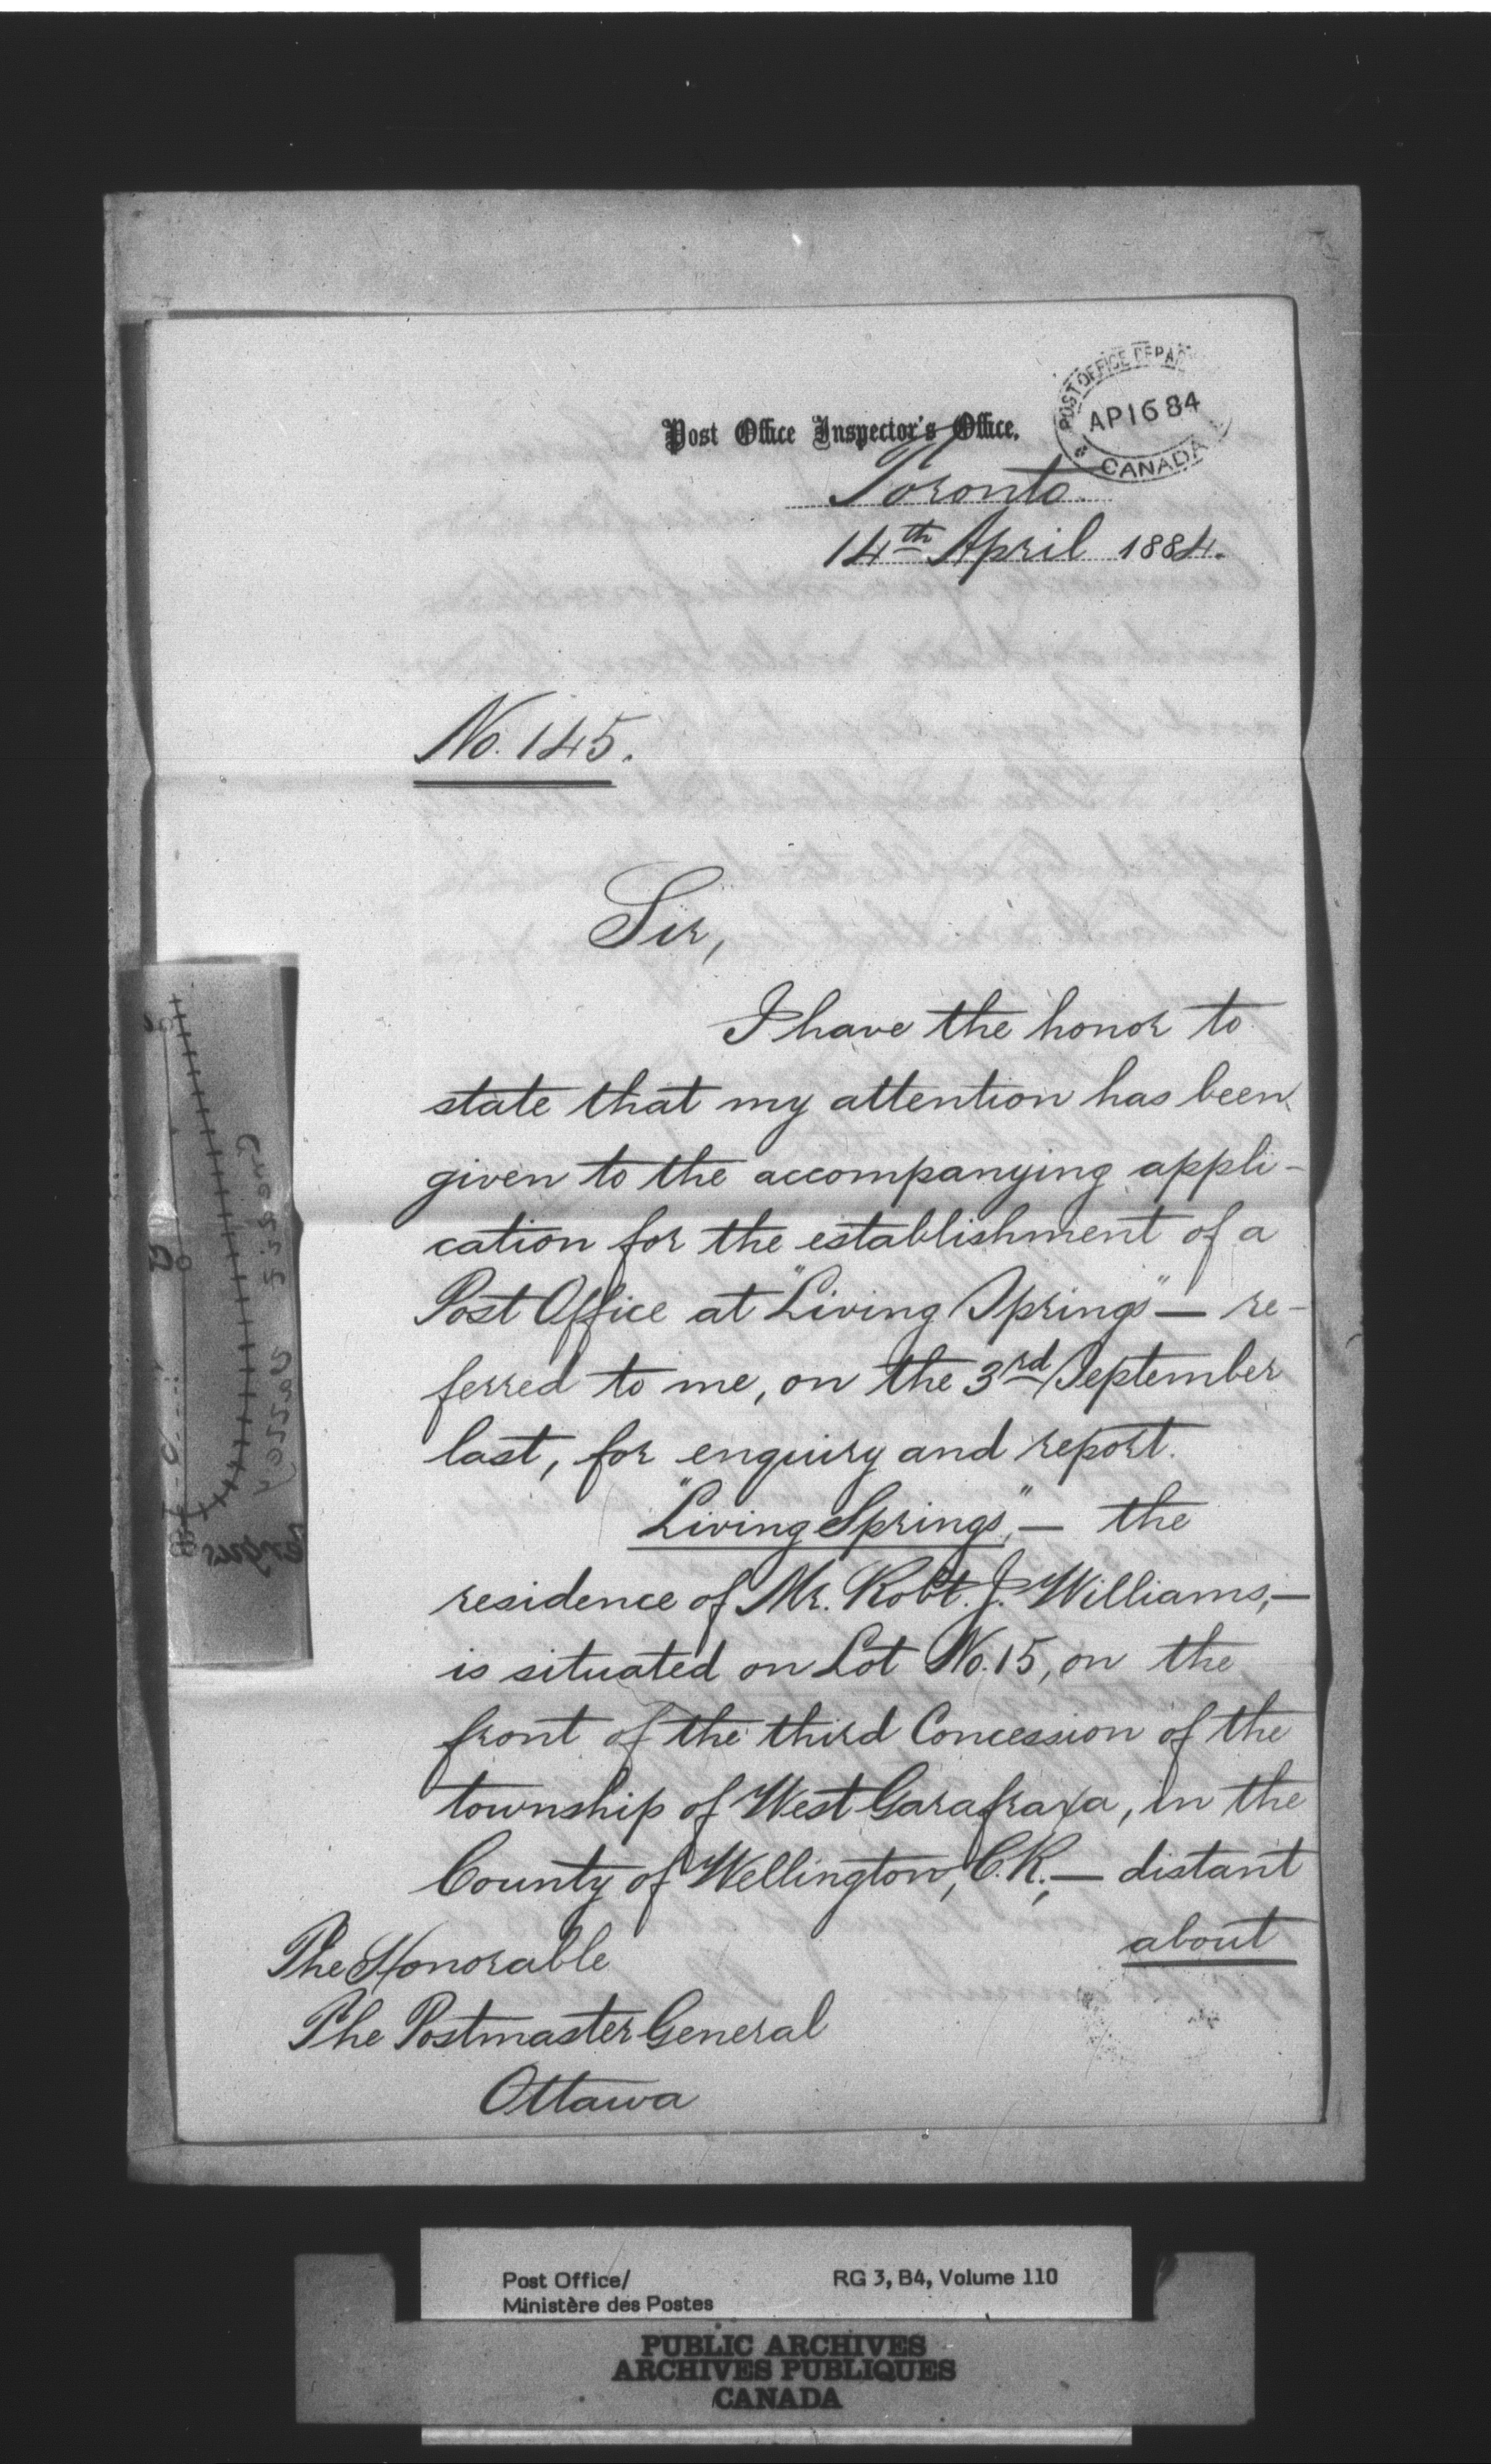 Post Office Inspector's Office,
POST OFFICE DEPAR
AP 16 84
CANADA
Toronto.
14th April 1884.
No. 145.
Sir,
I have the honor to
state that my attention has been
given to the accompanying appli-
cation for the establishment of a
Post Office at "Living Springs" — re-
ferred to me, on the 3rd September
last, for enquiry and report.
"Living Springs", — the
residence of Mr. Robt. J. Williams, —
is situated on Lot No. 15, on the
front of the third Concession of the
township of West Garafraxa, in the
County of Wellington, C.R., — distant
about
The Honorable
The Postmaster General
Ottawa
Fergus
Post Office/
Ministère des Postes
RG 3, B4, Volume 110
PUBLIC ARCHIVES
ARCHIVES PUBLIQUES
CANADA